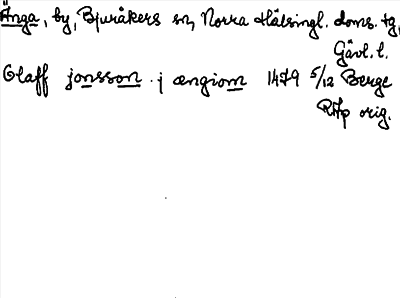 Änga, by, Bjuråkers sn, Norra Hälsingl. doms. tg,
Gävl. l.
Olaff jonsson j ængiom 1479 5/12 Berge
RAp orig.